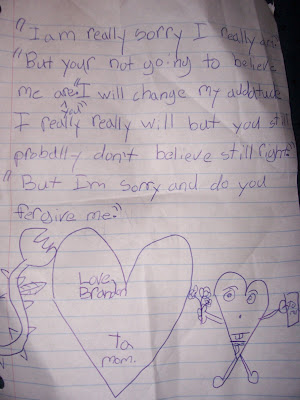 "I am really sorry I really am.
"But your not going to believe
me are
you"
"I will change my addatude
I really really will but you still
probally don't believe still right"
"But I'm sorry and do you
fergive me."
Love,
Brandn
To
mom.